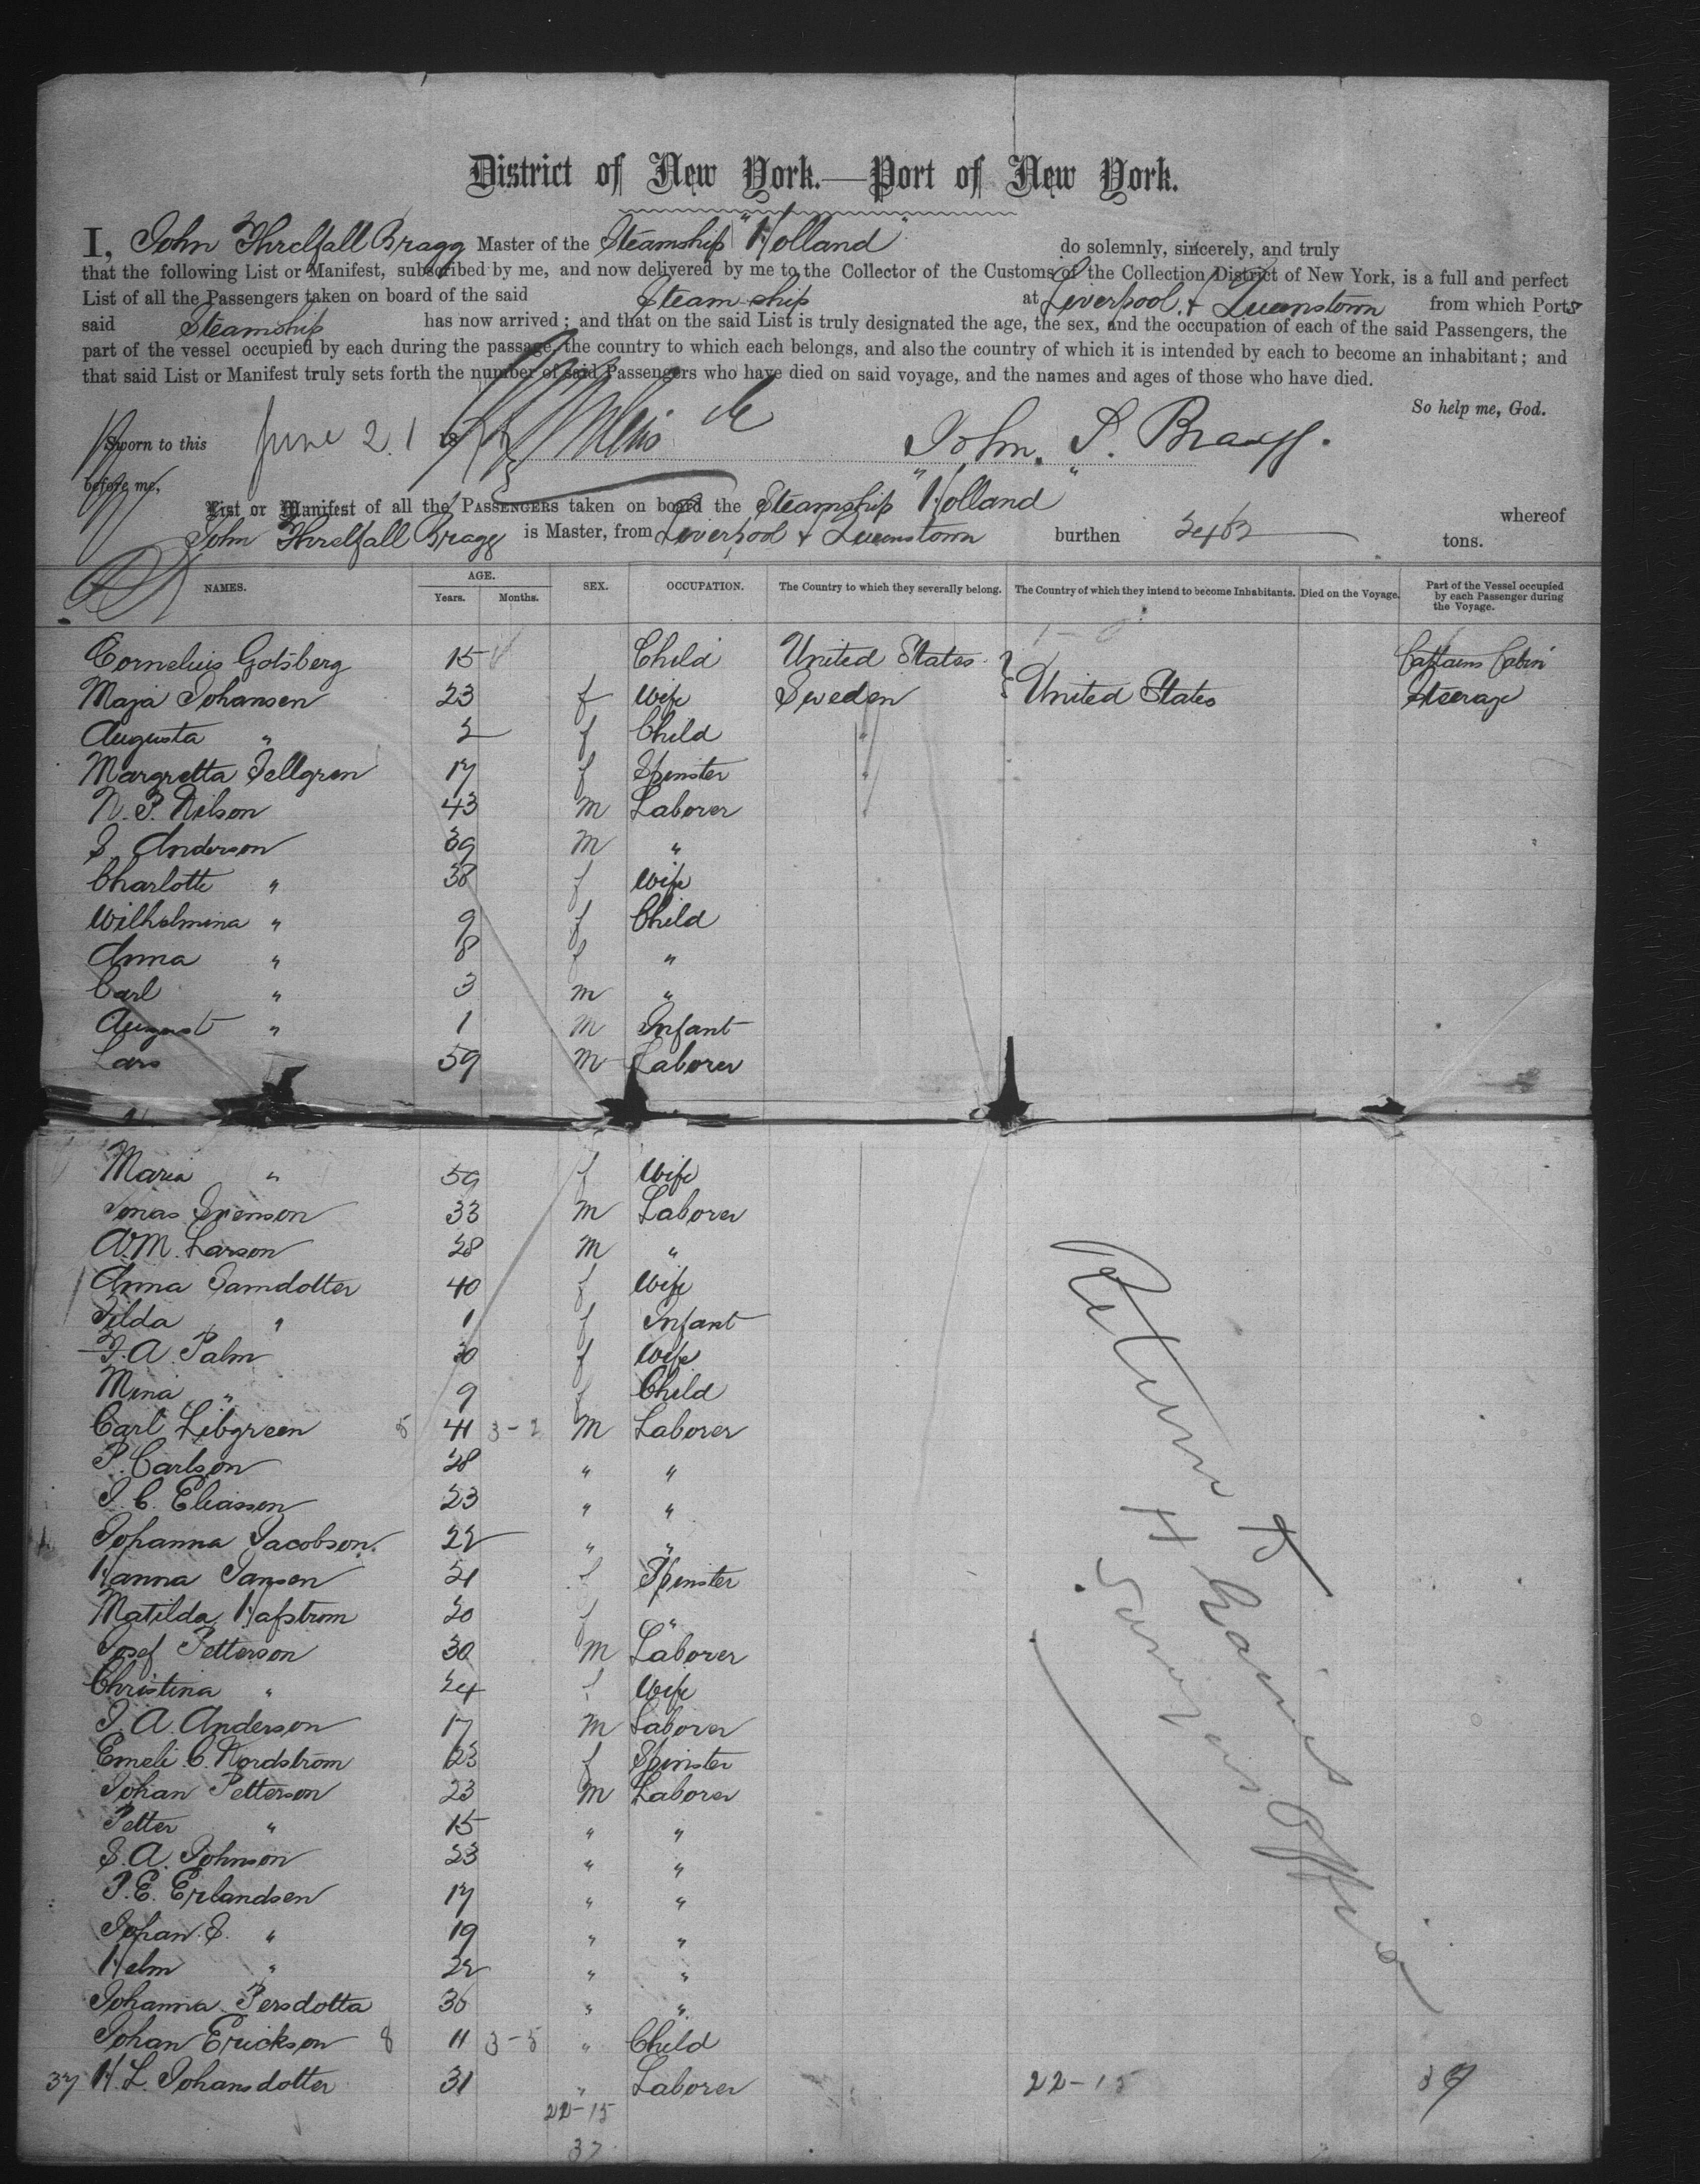 District of New York.—Port of New York.
I, John Threlfall Bragg Master of the Steamship "Holland" do solemnly, sincerely, and truly
that the following List or Manifest, subscribed by me, and now delivered by me to the Collector of the Customs of the Collection District of New York, is a full and perfect
List of all the Passengers taken on board of the said Steam ship at Liverpool & Queenstown from which Ports
said Steamship has now arrived; and that on the said List is truly designated the age, the sex, and the occupation of each of the said Passengers, the
part of the vessel occupied by each during the passage, the country to which each belongs, and also the country of which it is intended by each to become an inhabitant; and
that said List or Manifest truly sets forth the number of said Passengers who have died on said voyage, and the names and ages of those who have died.
So help me, God.
Sworn to this June 21 18
John. T. Bragg.
before me,
List or Manifest of all the PASSENGERS taken on board the Steamship "Holland" whereof
John Threlfall Bragg is Master, from Liverpool & Queenstown burthen tons.
NAMES. AGE. Years. Months. SEX. OCCUPATION. The Country to which they severally belong. The Country of which they intend to become Inhabitants. Died on the Voyage. Part of the Vessel occupied by each Passenger during the Voyage.
Cornelius Gotsberg 15 Child United States Captains Cabin
Maja Johansen 23 f Wife Sweden United States Steerage
Augusta " 2 f Child "
Margretta Tellgren 17 f Spinster "
N. P. Nilson 43 m Laborer
S. Anderson 39 m "
Charlotte " 38 f Wife
Wilhelmina " 9 f Child
Anna " 8 f "
Carl " 3 m "
August " 1 m Infant
Lars 59 m Laborer
Maria " 59 f Wife
Jonas Svenson 33 m Laborer
A. M. Larson 28 m "
Anna Samdotter 40 f Wife
Tilda " 1 f Infant
F. A. Palm 30 f Wife
Mina " 9 f Child
Carl Libgreen 5 41 3-2 m Laborer
P. Carlson 28 " "
J. C. Eliasson 23 " "
Johanna Jacobson. 22 " "
Hanna Jansen 21 f Spinster
Matilda Hafstrom 20 f "
Josef Petterson 30 m Laborer
Christina " 24 f Wife
J. A. Anderson 17 m Laborer
Emeli C. Nordstrom 23 f Spinster
Johan Petterson 23 m Laborer
Petter " 15 " "
S. A. Johnson 23 " "
P. E. Erlandsen 17 " "
Johan S. " 19 " "
Helm " 22 " "
Johanna Persdotta 36 " "
Johan Erickson 8 11 3-5 " Child
37 H. L. Johansdotter 31 " Laborer 22-15 37
22-15
37
Return to